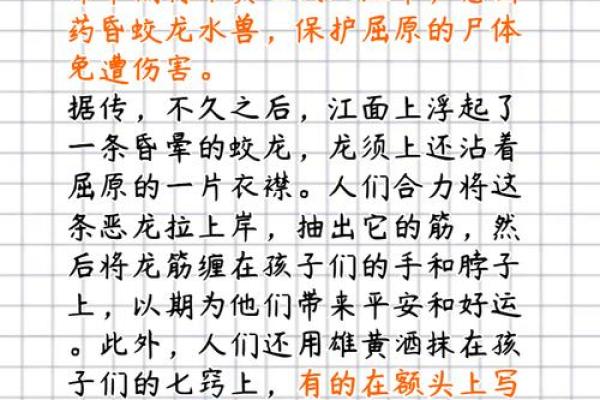 药昏蛟龙水兽，保护屈原的尸体
免遭伤害。
据传，不久之后，江面上浮起了
一条昏晕的蛟龙，龙须上还沾着
屈原的一片衣襟。人们合力将这
条恶龙拉上岸，抽出它的筋，然
后将龙筋缠在孩子们的手和脖子
上，以期为他们带来平安和好运
。此外，人们还用雄黄酒抹在孩
子们的七窍上，有的在额头上写